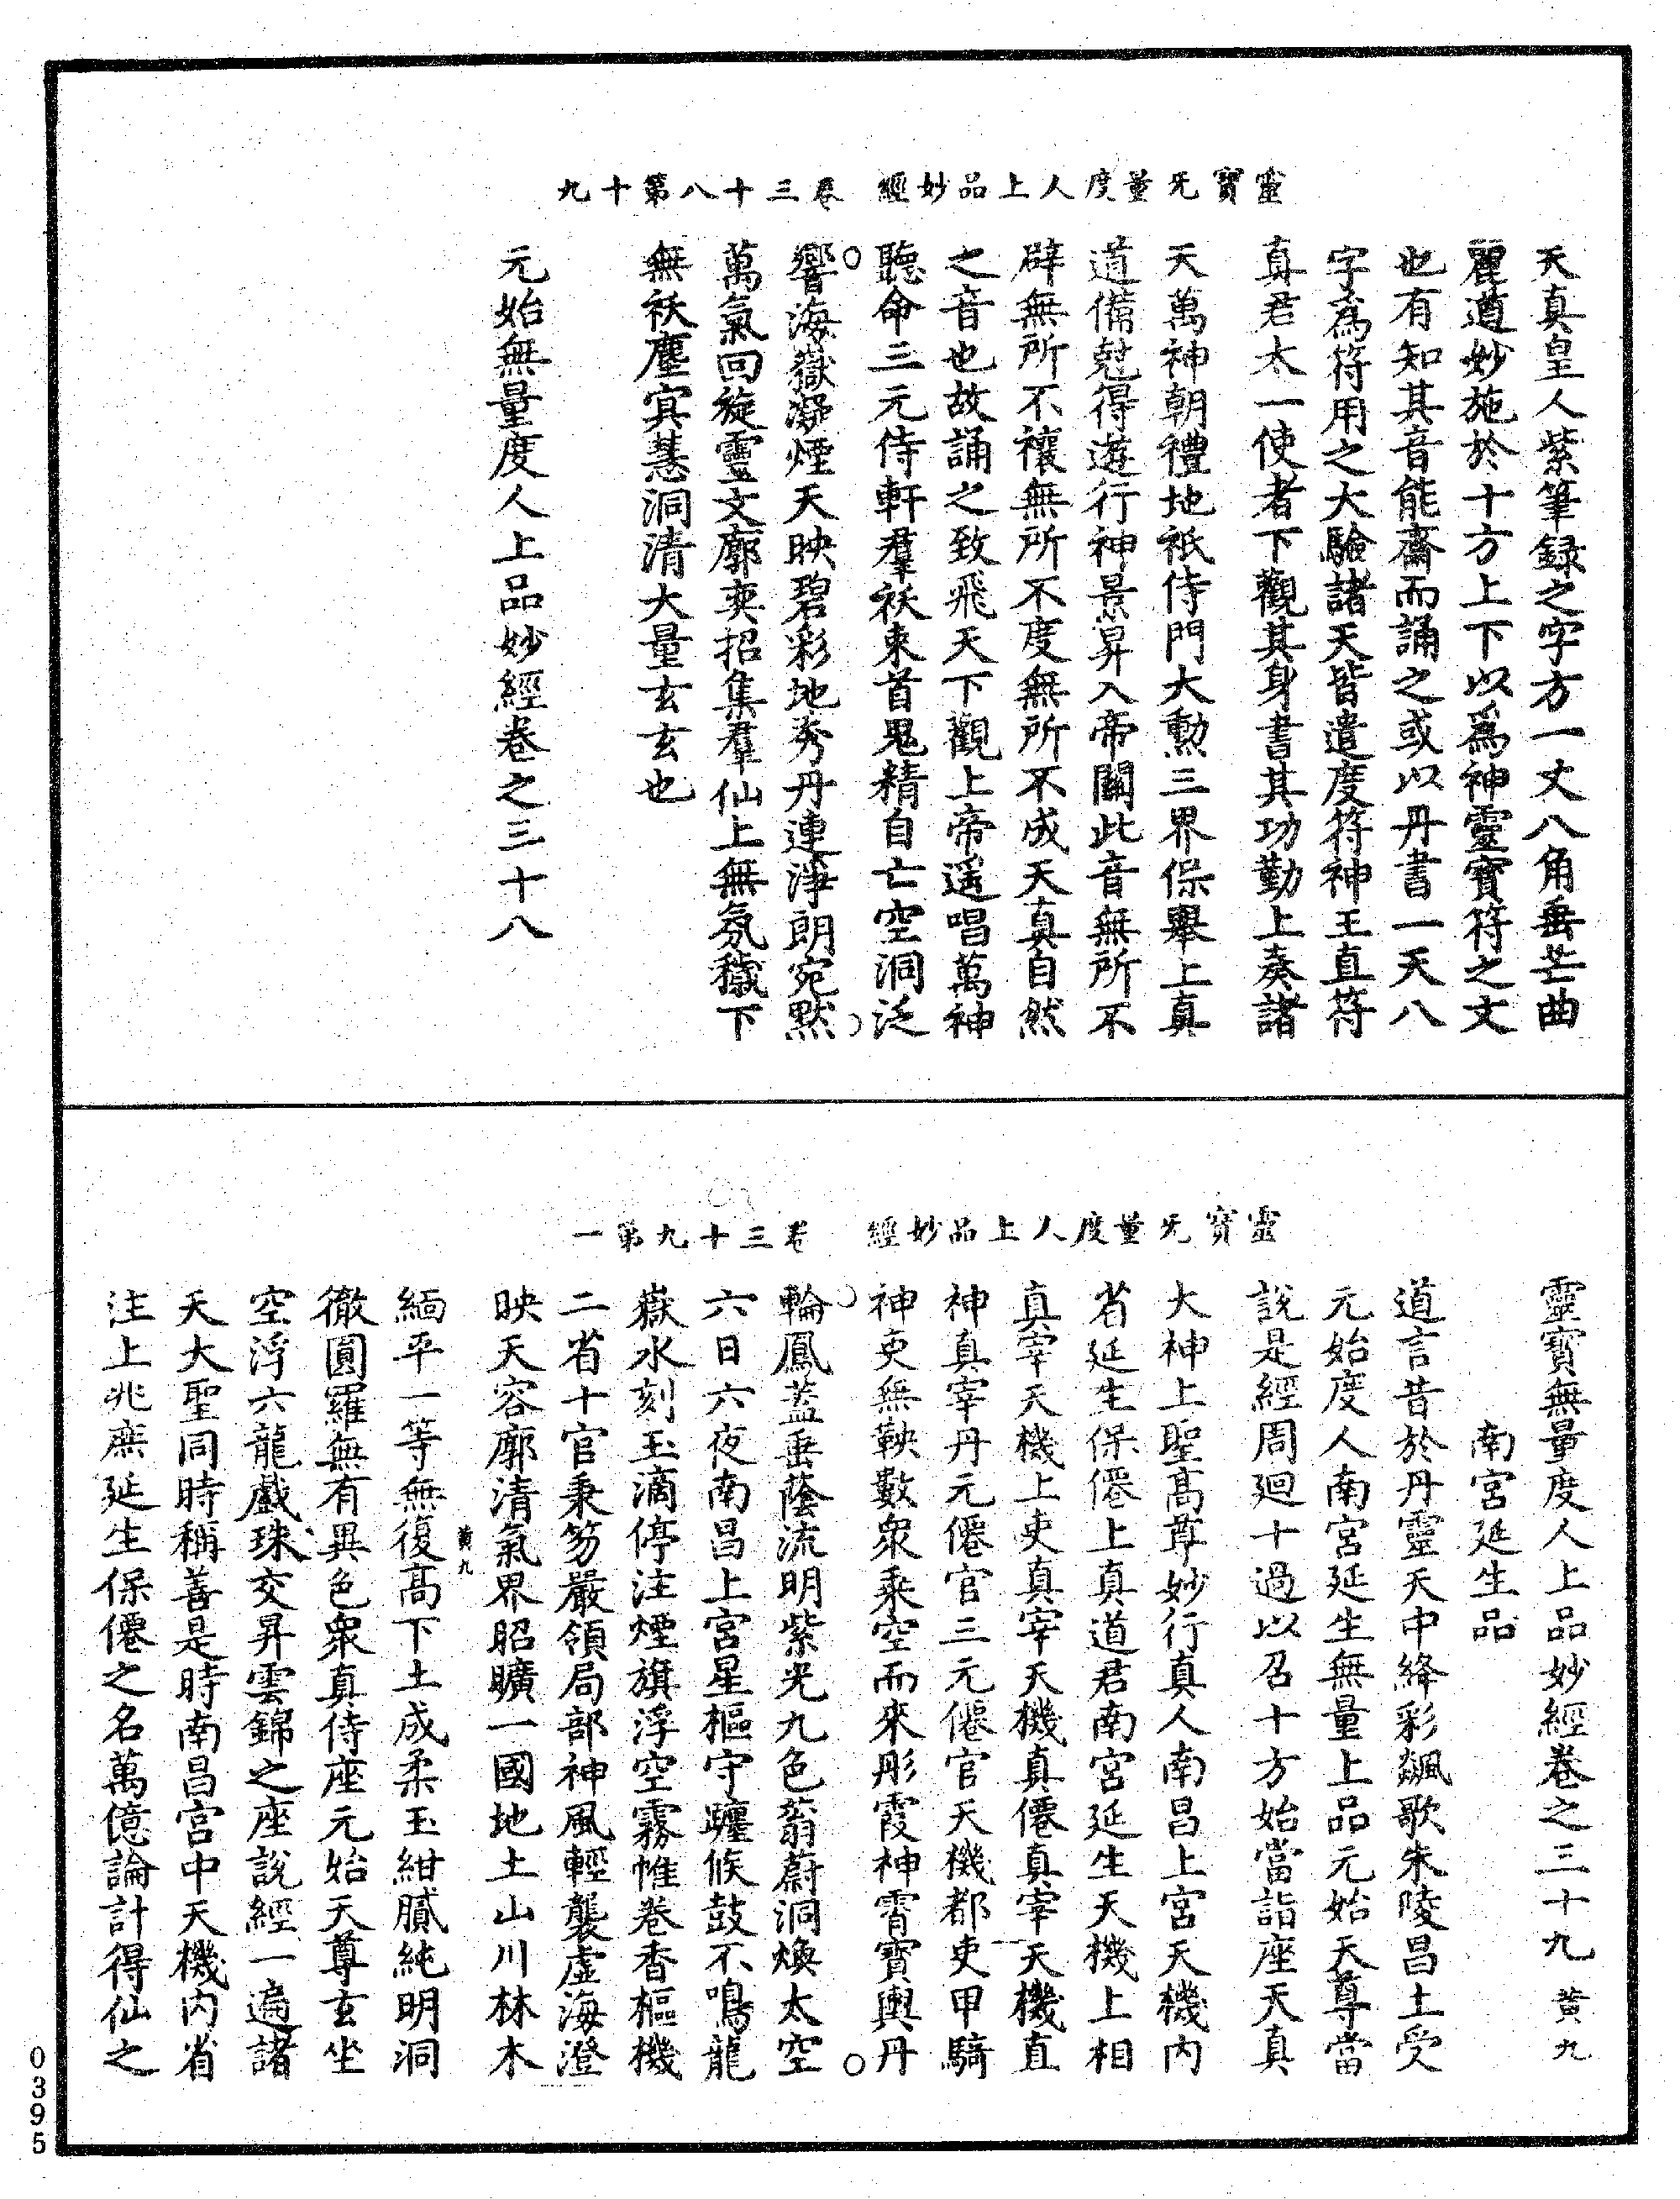 靈寶无量度人上品妙經　卷三十八第十九
天真皇人紫筆録之字方一丈八角垂芒曲
麗道妙施於十方上下以爲神靈寶符之文
也有知其音能齋而誦之或以丹書一天八
字爲符用之大驗諸天皆遣度符神王直符
真君太一使者下觀其身書其功勤上奏諸
天萬神朝禮地祇侍門大勲三界保舉上真
道備尅得遊行神景昇入帝闕此音無所不
辟無所不禳無所不度無所不成天真自然
之音也故誦之致飛天下觀上帝遥唱萬神
聽命三元侍軒羣祅束首鬼精自亡空洞泛
響海嶽凝煙天映碧彩地秀丹連淨朗宛默
萬氣回旋靈文廓奕招集羣仙上無氛穢下
無祅塵寘慧洞清大量玄玄也
元始無量度人上品妙經卷之三十八
靈寶无量度人上品妙經　卷三十九第一
靈寶無量度人上品妙經卷之三十九　黄九
南宮延生品
道言昔於丹靈天中絳彩飆歌朱陵昌土受
元始度人南宮延生無量上品元始天尊當
說是經周廻十過以召十方始當詣座天真
大神上聖高尊妙行真人南昌上宮天機内
省延生保僊上真道君南宮延生天機上相
真宰天機上吏真宰天機真僊真宰天機直
神真宰丹元僊官三元僊官天機都吏甲騎
神吏無鞅數衆乘空而來彤霞神霄寶輿丹
輪鳳蓋垂蔭流明紫光九色蓊蔚洞煥太空
六日六夜南昌上宮星樞守躔候鼓不鳴龍
嶽水刻玉滴停注煙旗浮空霧帷卷香樞機
二省十官秉笏嚴領局部神風輕襲虛海澄
映天容廓清氣界昭曠一國地土山川林木
緬平一等無復高下土成柔玉紺膩純明洞
黄九
徹圓羅無有異色衆真侍座元始天尊玄坐
空浮六龍戲珠交昇雲錦之座說經一遍諸
天大聖同時稱善是時南昌宮中天機内省
注上兆庶延生保僊之名萬億論計得仙之
0395